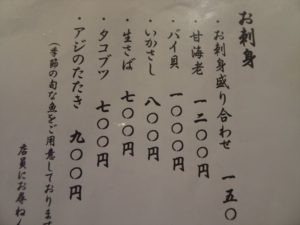 お刺身
・お刺身盛り合わせ 一五〇
・甘海老 一二〇〇円
・バイ貝 一〇〇〇円
・いかさし 八〇〇円
・生さば 七〇〇円
・タコブツ 七〇〇円
・アジのたたき 九〇〇円
(季節の旬な魚をご用意しております
店員にお尋ねん